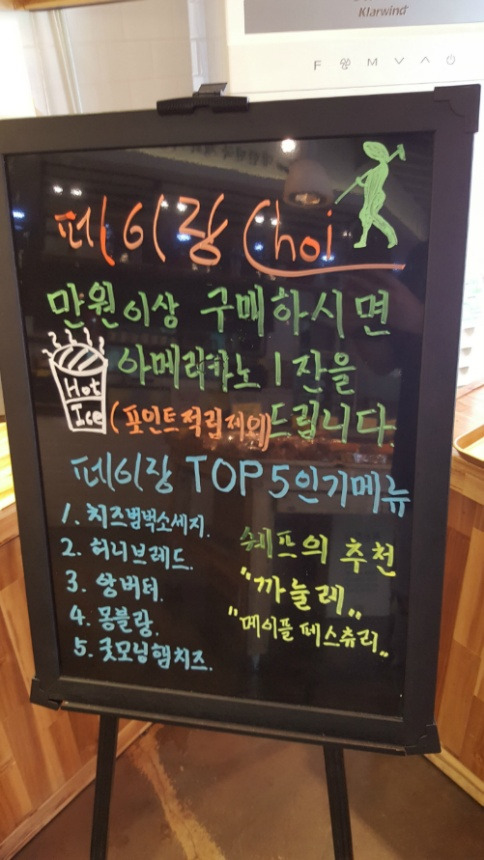 Klarwind
F M
페이랑 Choi
만원이상 구매하시면
아메리카노 1잔을
Hot
Ice
(포인트적립제외)드립니다
페이랑 TOP5인기메뉴
1. 치즈범벅소세지.
2. 허니브레드.
3. 앙버터.
4. 몽블랑.
5. 굿모닝햄치즈.
쉐프의 추천
"까눌레"
"메이플페스츄리"